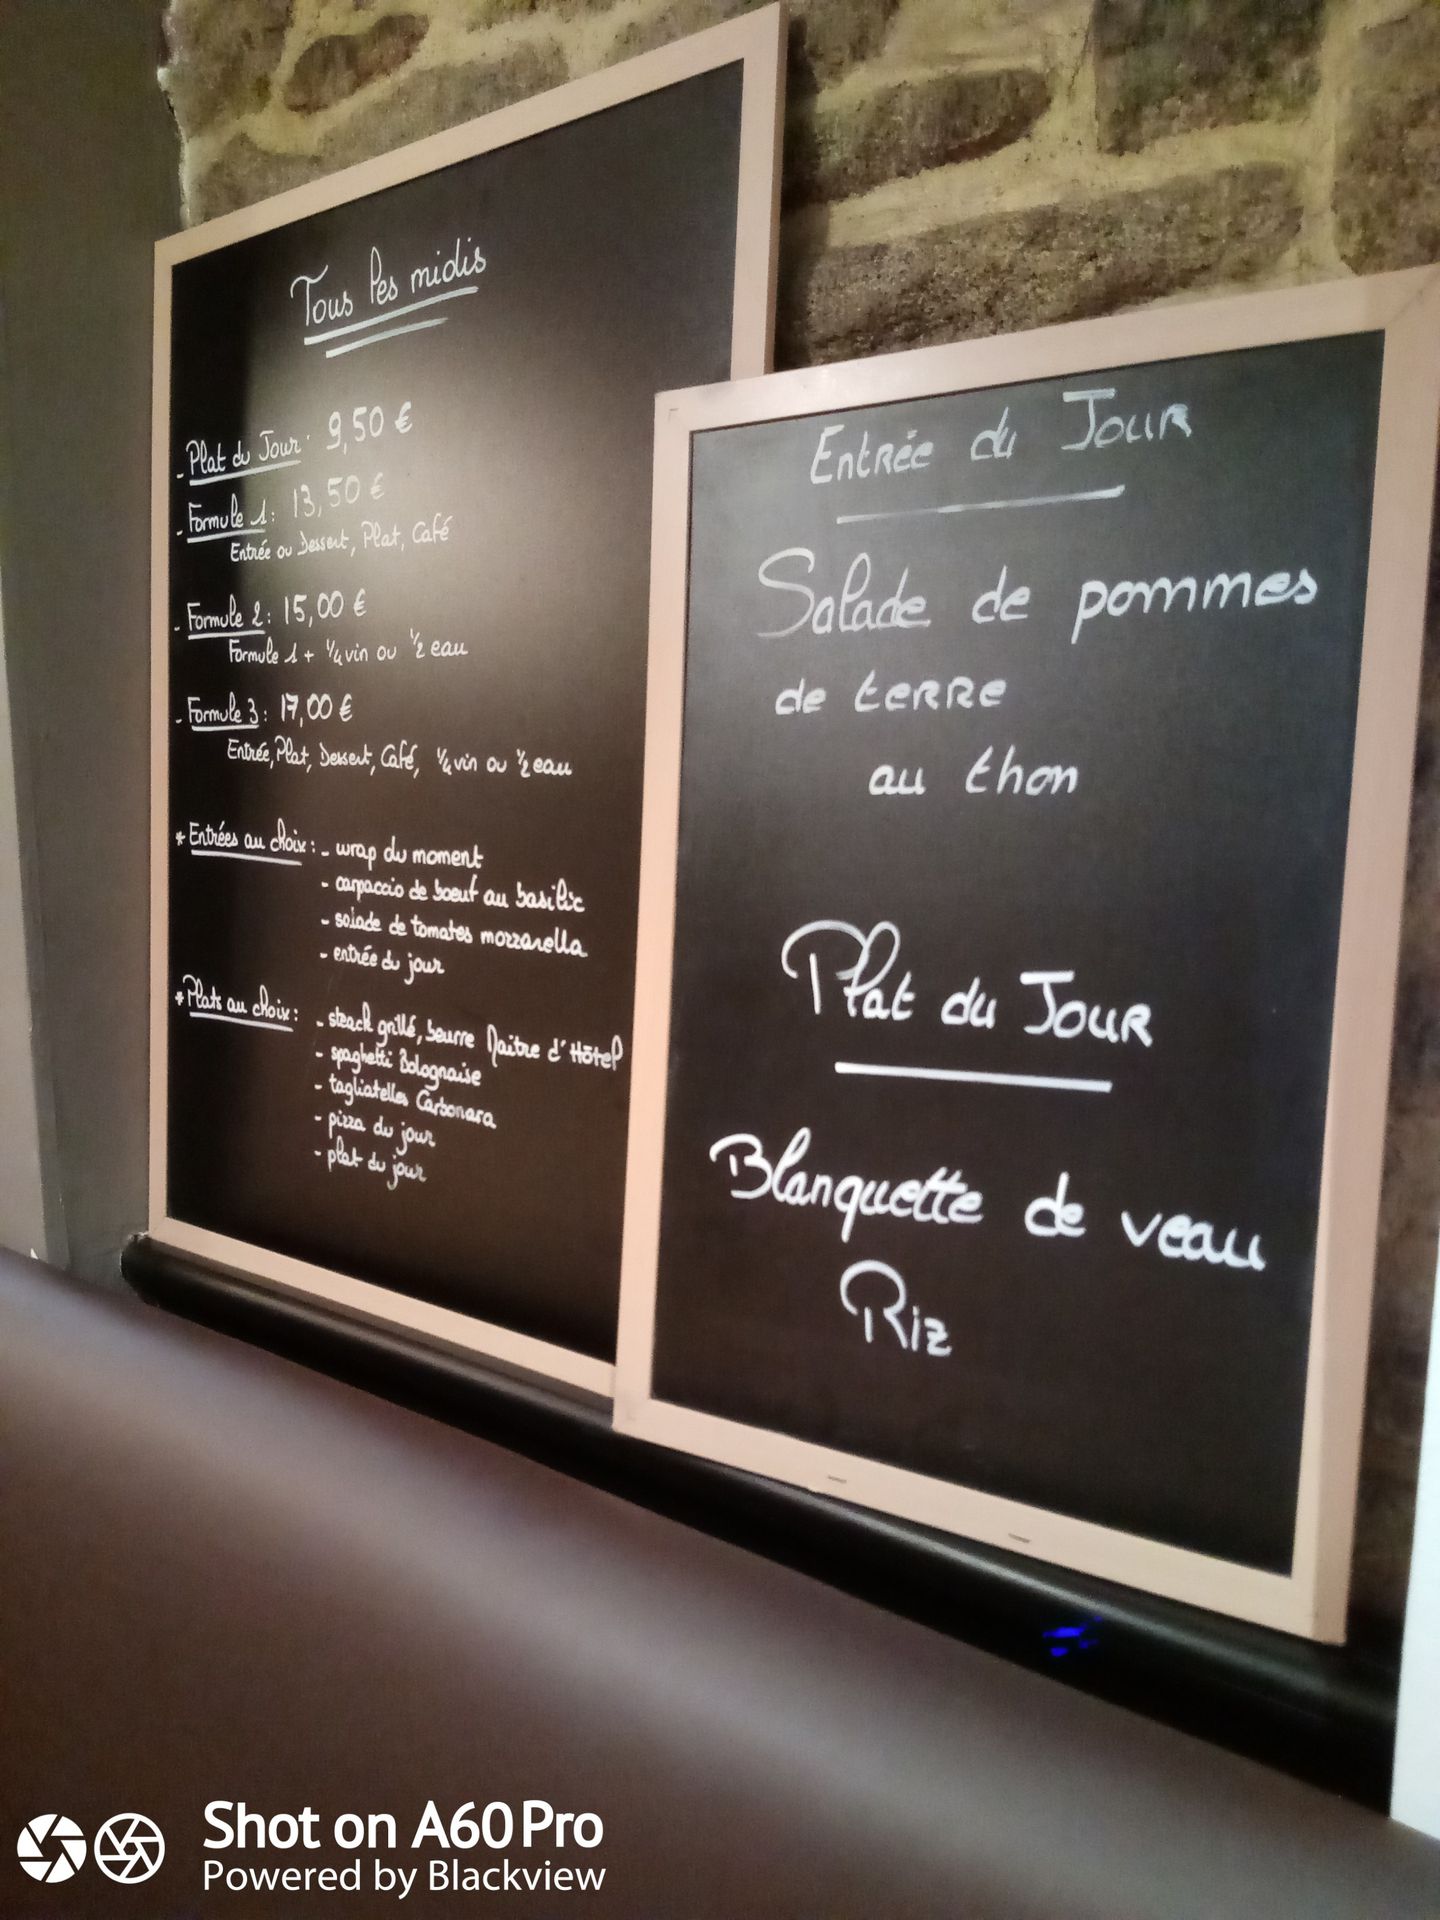 Tous les midis
- Plat du Jour: 9,50 €
- Formule 1: 13,50 €
Entrée ou Dessert, Plat, Café
- Formule 2: 15,00 €
Formule 1 + 1/4 vin ou 1/2 eau
- Formule 3: 17,00 €
Entrée, Plat, Dessert, Café, 1/4 vin ou 1/2 eau
* Entrées au choix: - wrap du moment
- carpaccio de boeuf au basilic
- salade de tomates mozzarella
- entrée du jour
* Plats au choix: - steack grillé, beurre Maître d'Hôtel
- spaghetti Bolognaise
- tagliatelles Carbonara
- pizza du jour
- plat du jour
Entrée du Jour
Salade de pommes
de terre
au thon
Plat du Jour
Blanquette de veau
Riz
Shot on A60 Pro
Powered by Blackview